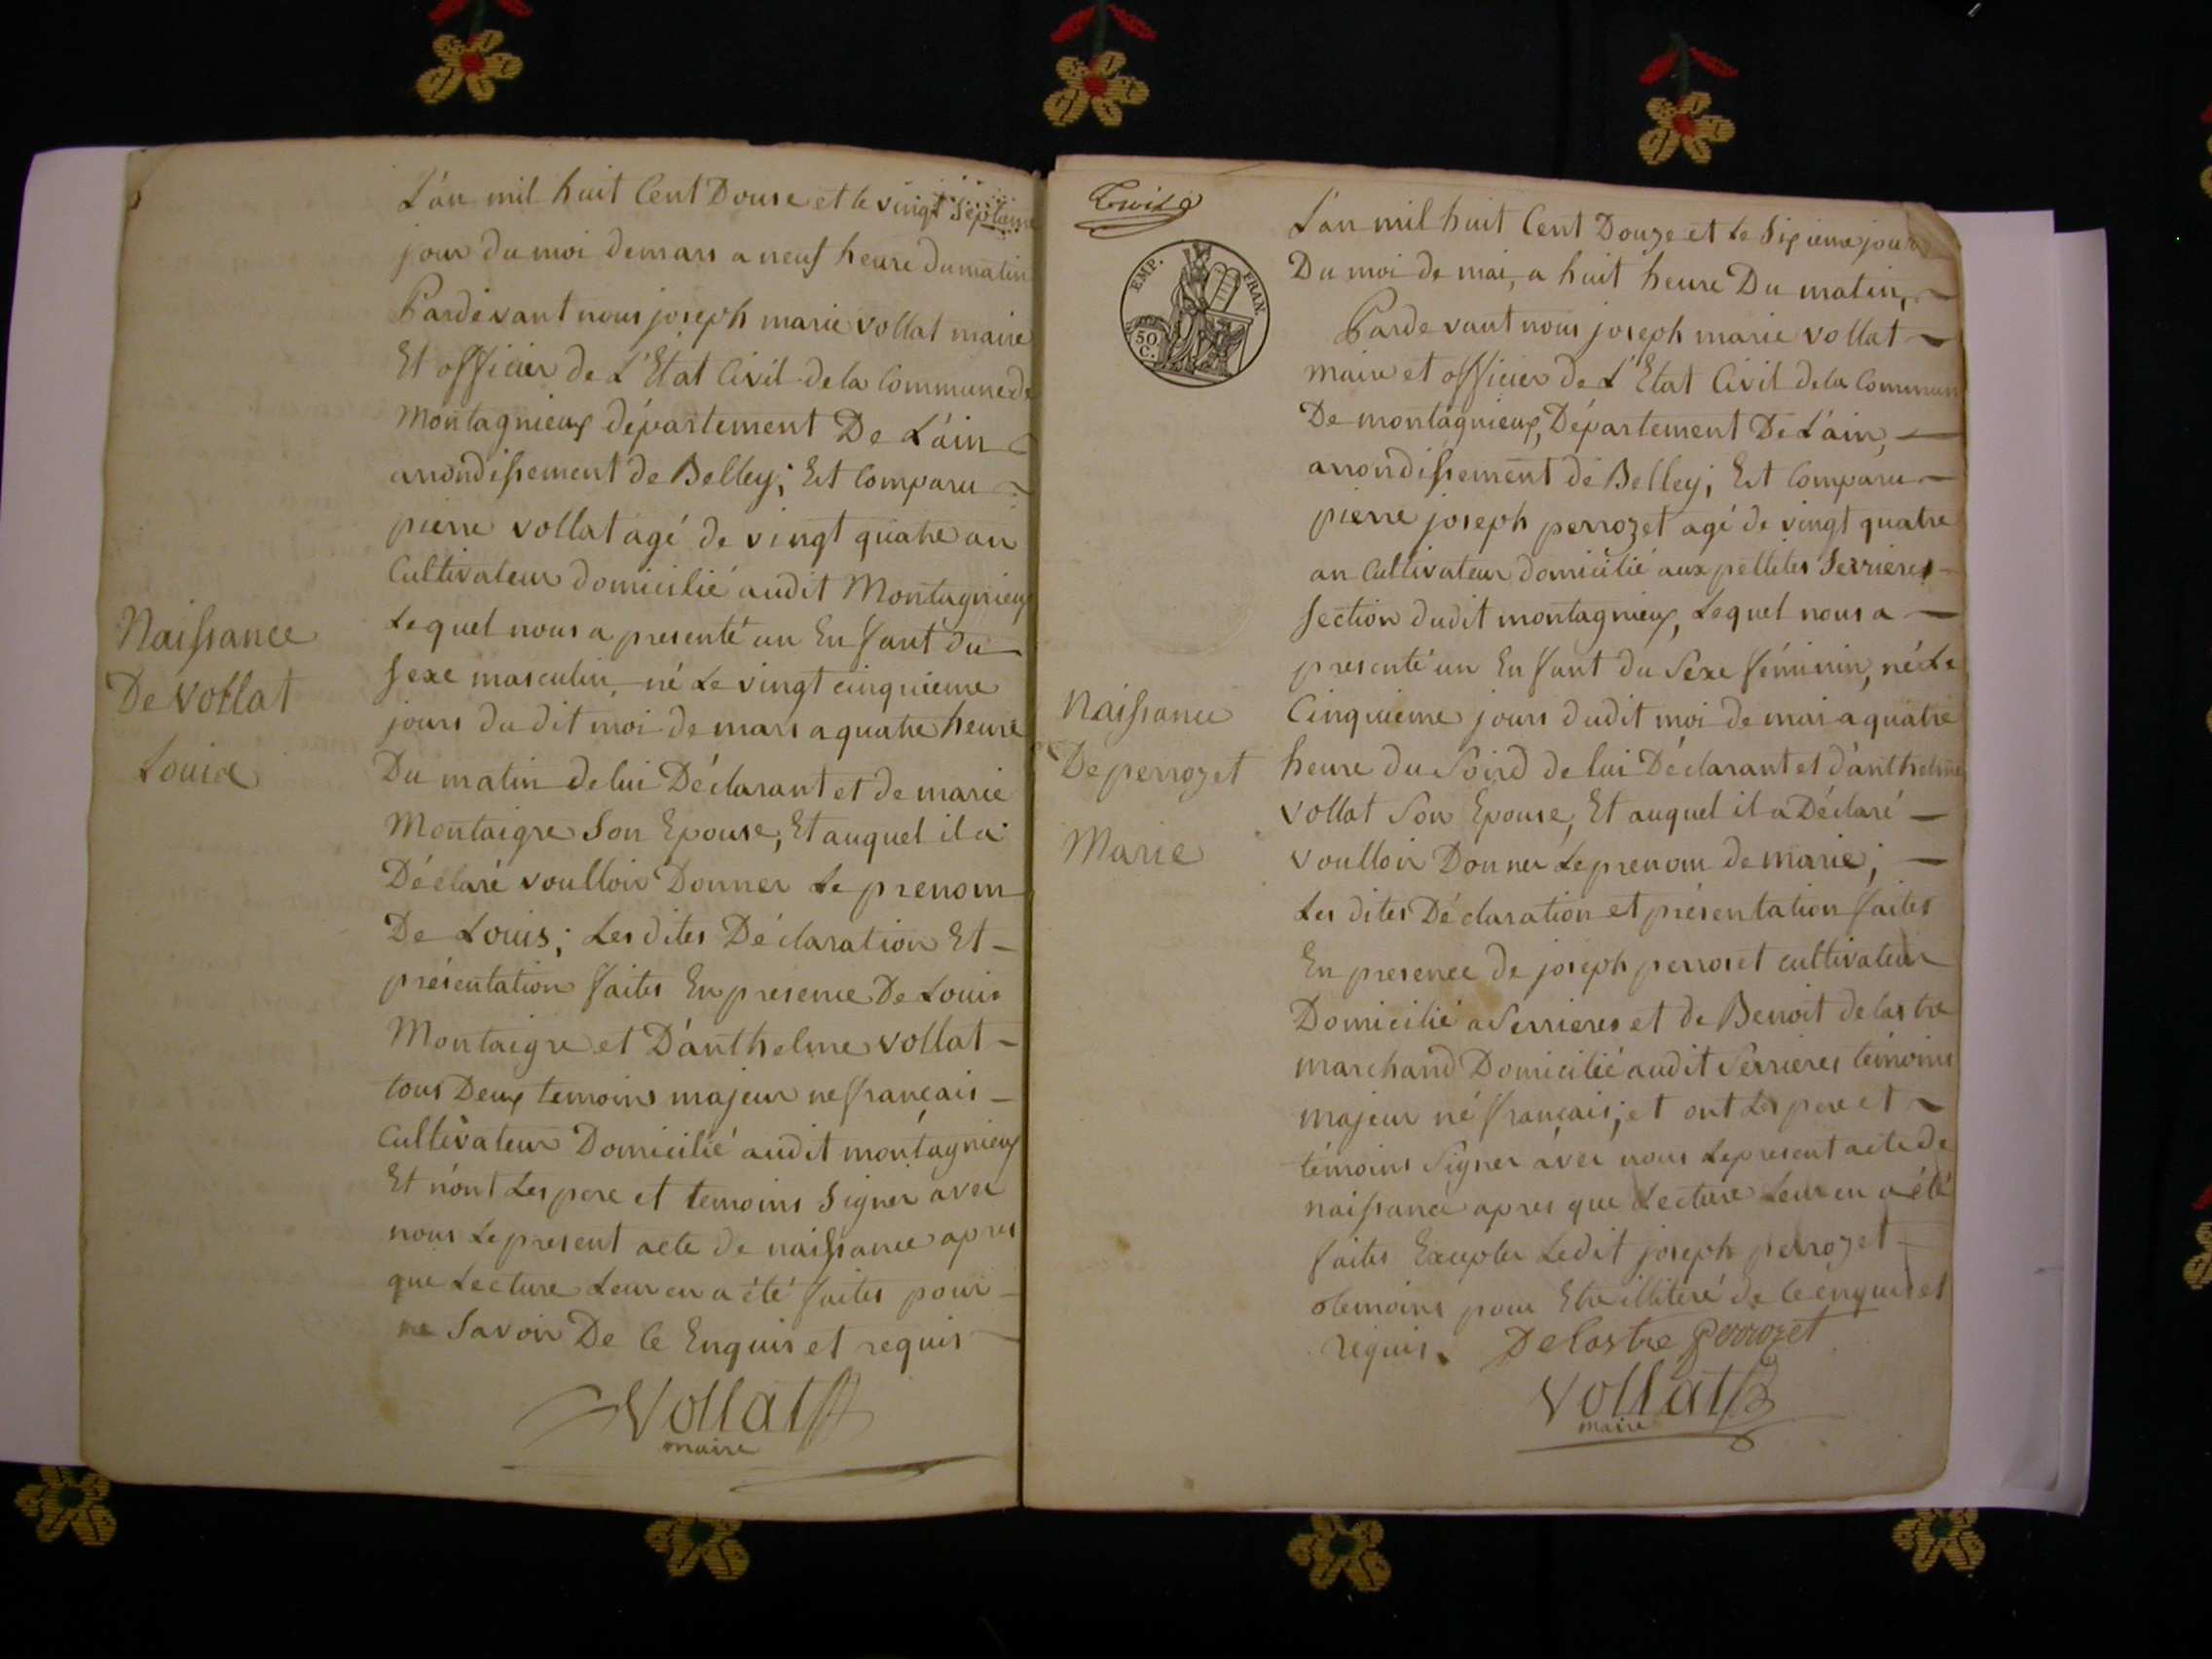 L'an mil huit Cent Douse et le vingt Septieme
jour du moi de mars a neuf heure du matin
Pardevant nous joseph marie vollat maire
Et officier de L'Etat Civil de la Commune de
Montagnieux département De L'ain
arrondissement de Belley; Est Comparu
pierre vollat agé de vingt quatre an
Cultivateur domicilié audit Montagnieux
Lequel nous a presenté un Enfant du
sexe masculin, né Le vingt cinquieme
jours du dit moi de mars a quatre heure
Du matin de lui Déclarant et de marie
Montaigre Son Epouse, Et auquel il a
Déclaré voulloir Donner Le prenom
De Louis; Les dites Déclaration Et
présentation faites En presence De Louis
Montaigre et D'anthelme vollat
tous Deux temoins majeur ne français
Cultivateur Domicilié audit montagnieux
Et n'ont Les pere et temoins Signer avec
nous Le present acte de naissance apres
que Lecture Leur en a été faites pour
ne Savoir De Ce Enquis et requis
Vollat
maire
Naissance
De vollat
Louis
EMP. FRAN.
50 C.
L'an mil huit Cent Douze et Le Sixieme jour
Du moi de mai, a huit heure Du matin,
Pardevant nous joseph marie vollat
maire et officier de L'Etat Civil de la Commun
De montagnieux, Département De L'ain,
arrondissement de Belley; Est Comparu
pierre joseph perrozet agé de vingt quatre
an Cultivateur domicilié aux pellites Serrieres
section dudit montagnieux, Lequel nous a
presenté un Enfant du Sexe féminin, né Le
Cinquieme jours dudit moi de mai a quatre
heure du Soird de lui Déclarant et d'anthelme
vollat Son Epouse, Et auquel il a Déclaré
voulloir Donner Le prenom de marie;
Les dites Déclaration et présentation faites
En presence de joseph perroset cultivateur
Domicilié a Serrieres et de Benoit delastre
marchand Domicilié audit Serrieres témoins
majeur né français; et ont Les pere et
témoins Signer avec nous Le present acte de
naissance apres que Lecture Leur en a été
faites Excepter Ledit joseph perrozet
temoins pour Etre illiteré de Ce enquis et
requis. Delastre perrozet
Vollat
maire
Naissance
De perrozet
Marie